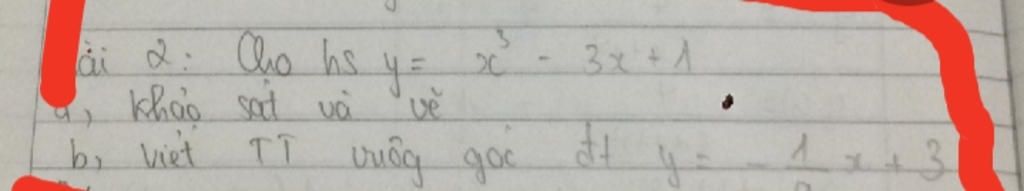 ài 2: Cho hs y = x³ - 3x + 1
a, khảo sát và vẽ
b, viết TT vuôg góc đt y = - x + 3